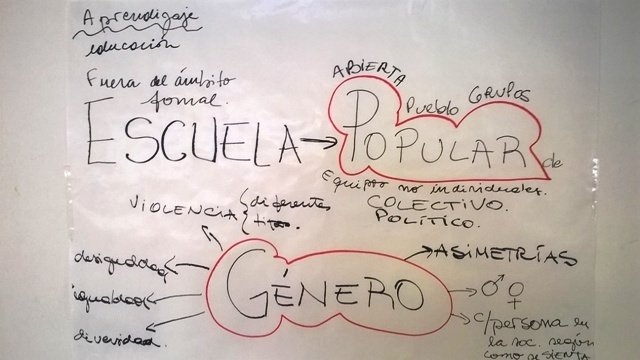 Aprendizaje
educación
Fuera del ámbito
formal.
ABIERTA
Pueblo GRUPOS
ESCUELA → POPULAR de
Equipos no individuales.
COLECTIVO.
POLÍTICO.
VIOLENCIA { diferentes
desigualdad
igualdad
diversidad.
GÉNERO
ASIMETRÍAS
♂ ♀
c/persona en
la soc. según
como se SIENTA